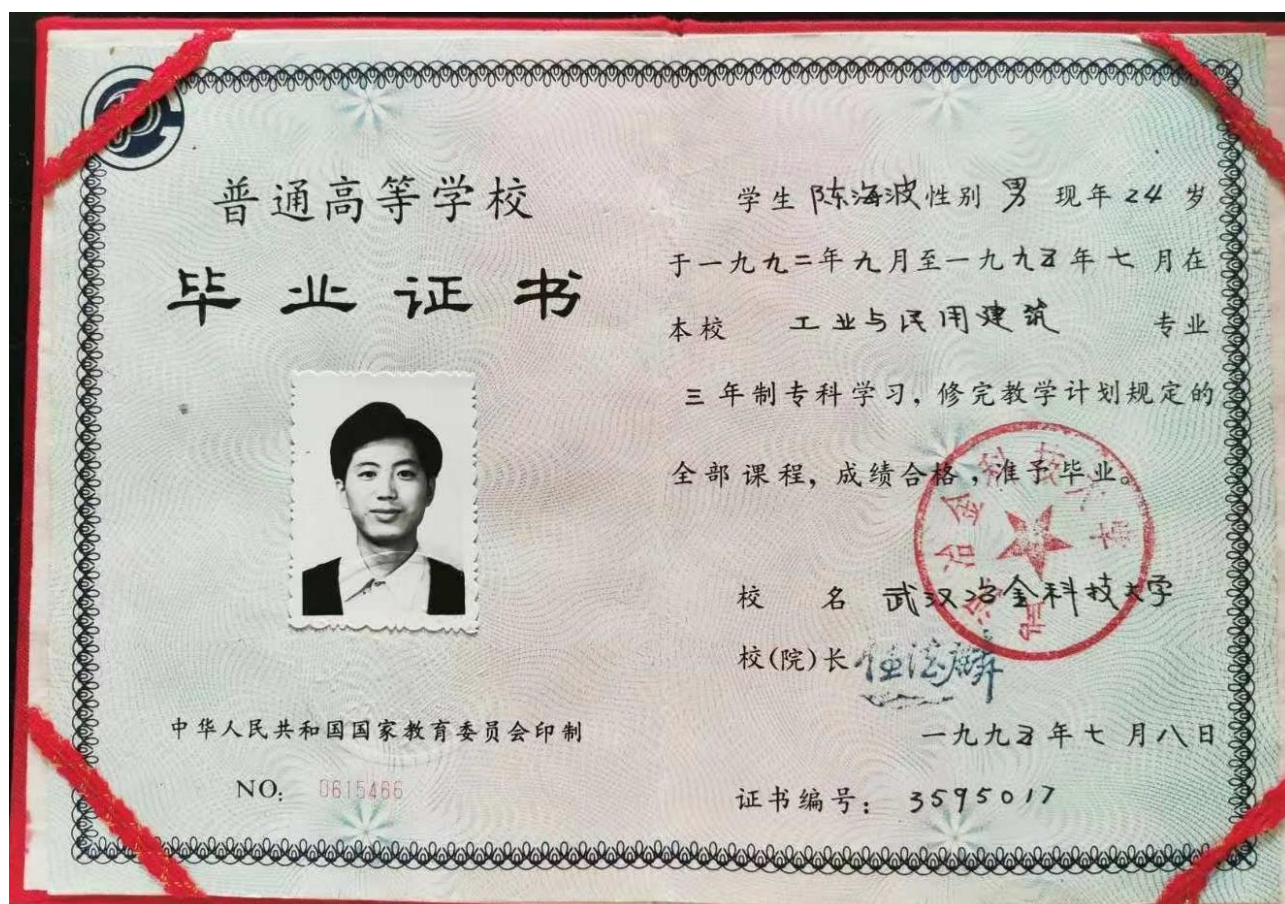 普通高等学校
毕业证书
中华人民共和国国家教育委员会印制
NO: 0615466
学生 陈海波 性别 男 现年 24 岁
于一九九二年九月至一九九五年七月在
本校 工业与民用建筑 专业
三年制专科学习,修完教学计划规定的
全部课程,成绩合格,准予毕业。
武汉冶金科技大学
校 名 武汉冶金科技大学
校(院)长
一九九五年七月八日
证书编号: 3595017